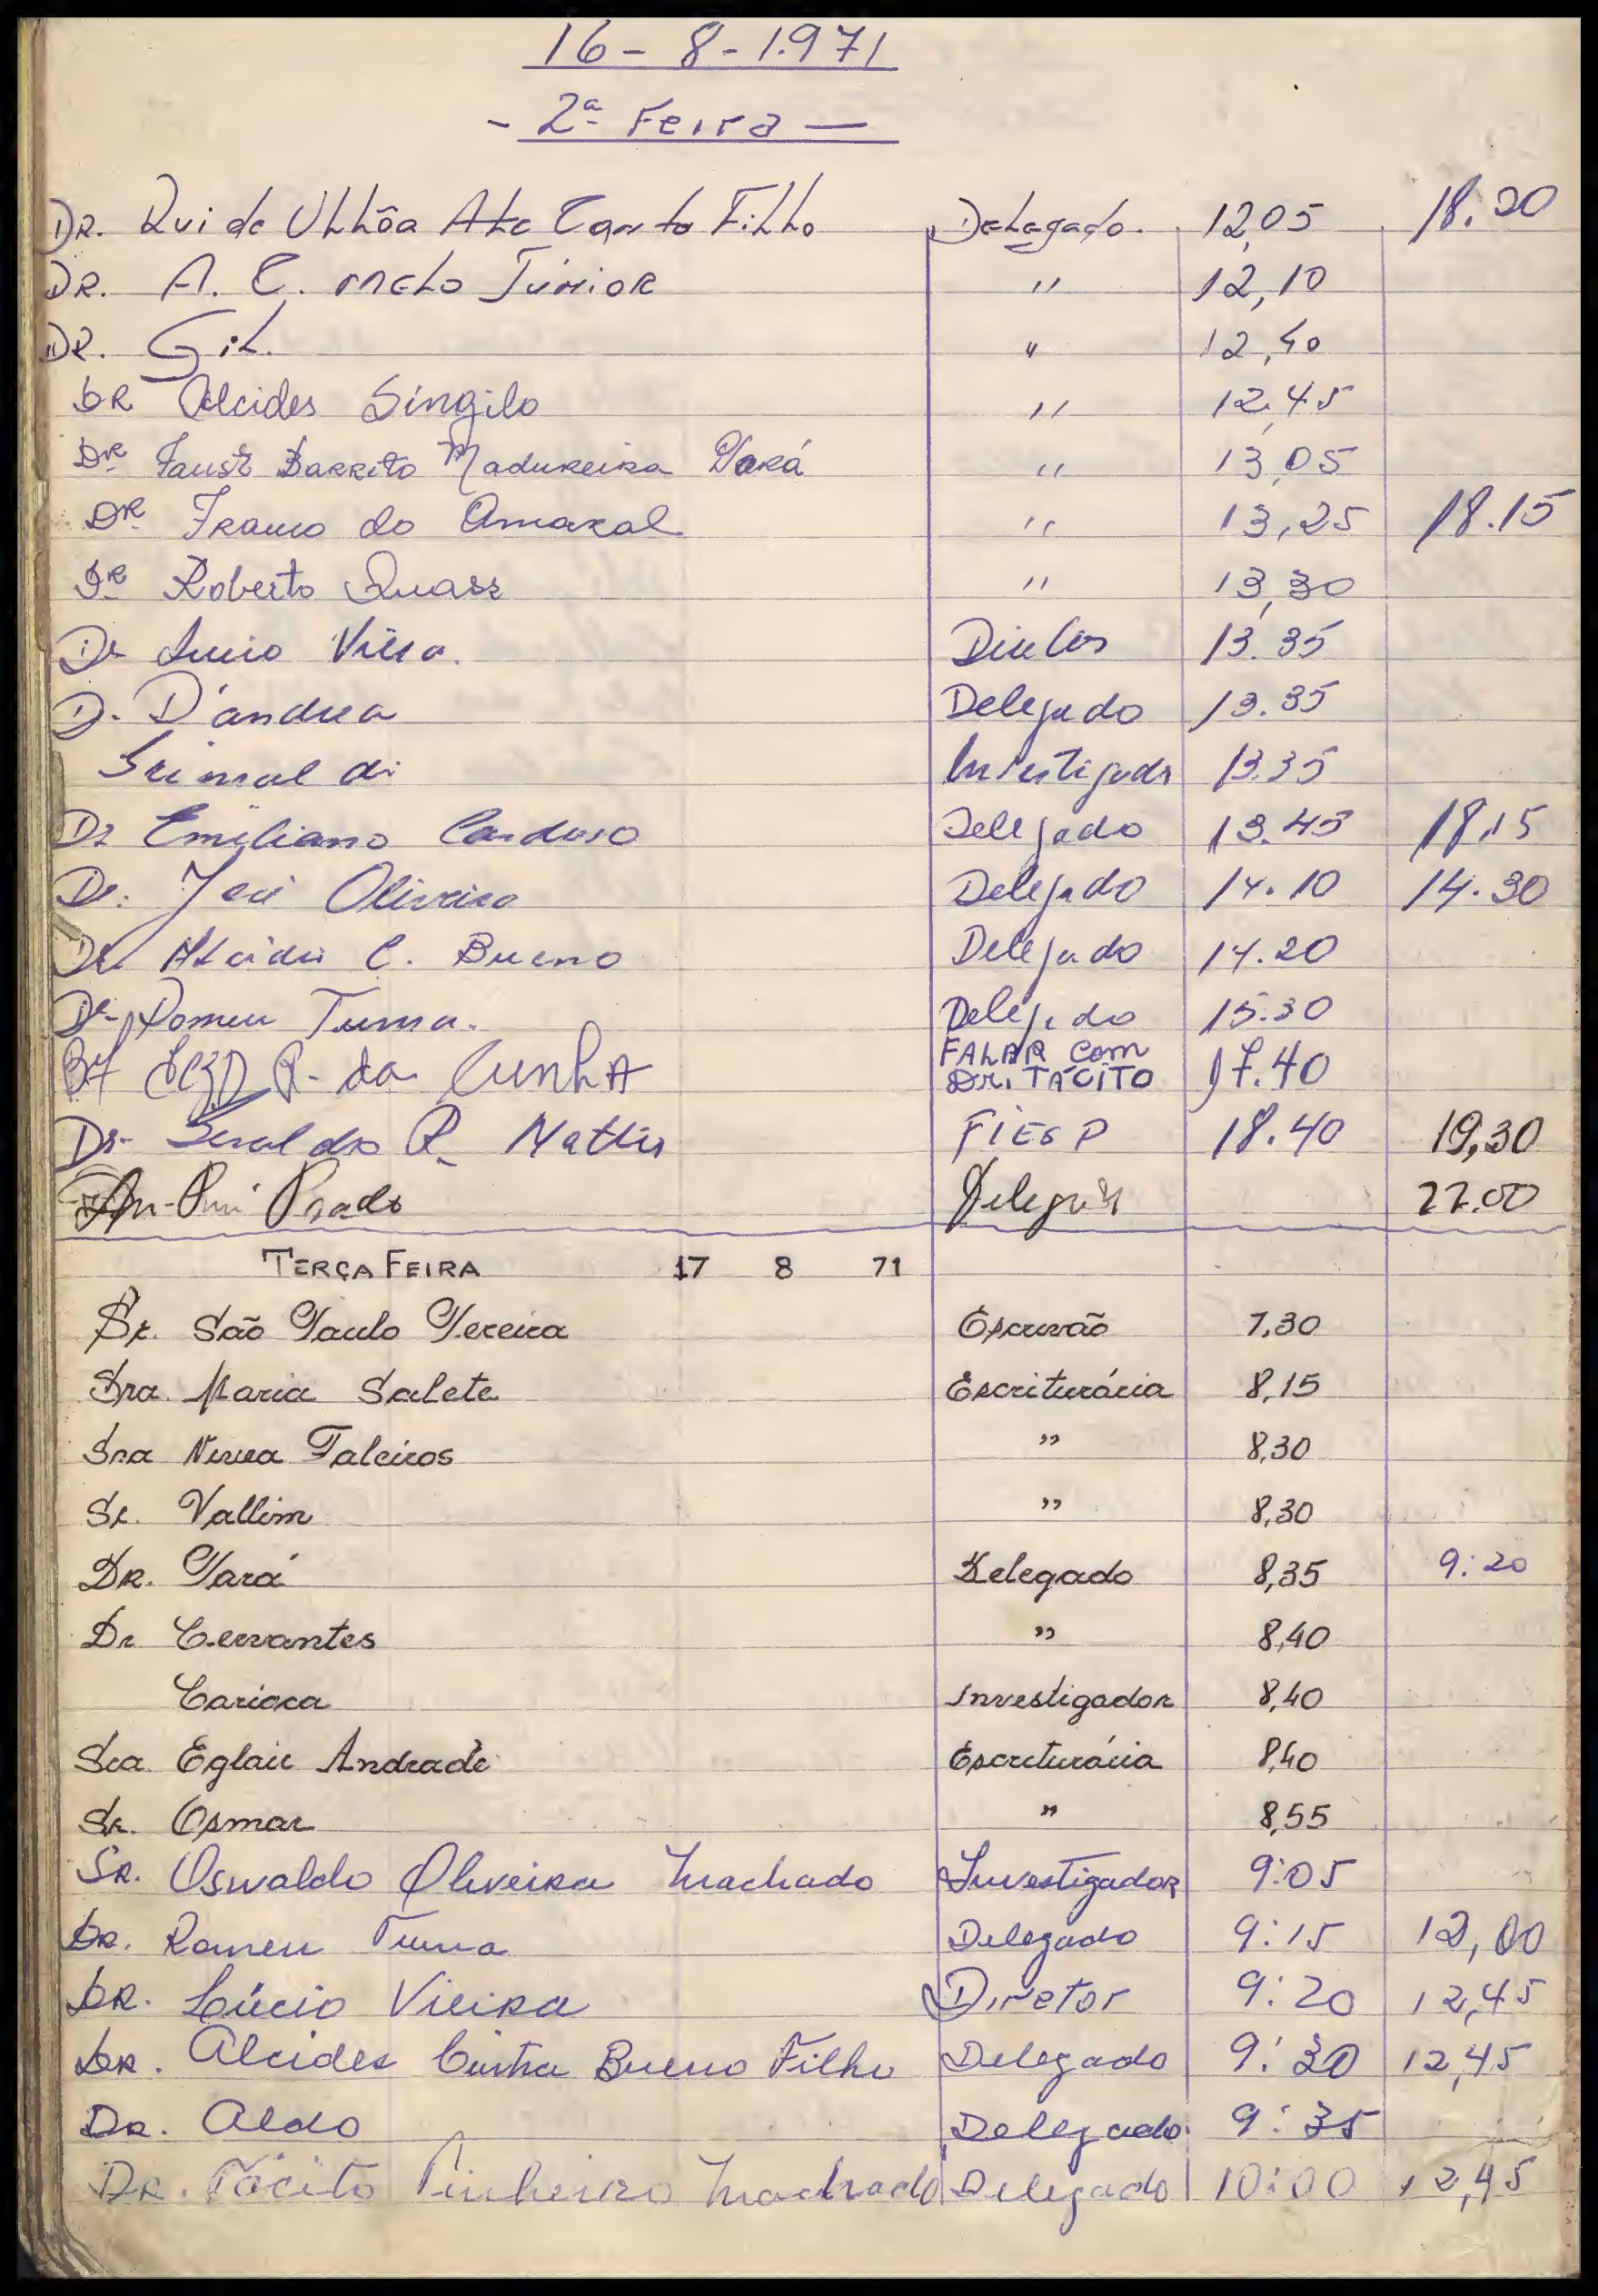 16-8-1.971
- 2ª Feira —
DR. Rui de Ulhôa Canto Filho Delegado. 12,05 18.20
DR. A. C. Melo Júnior " 12,10
DR. Gil. " 12,40
DR Alcides Singilo " 12,45
DR Fausto Barreto Madureira Pará " 13,05
DR Franco do Amaral " 13,25 18.15
DR Roberto Quass " 13,30
Dr Lucio Vieira. Diretor 13.35
D. D'andrea Delegado 13.35
Grimaldi Investigador 13.35
Dr Emiliano Cardoso Delegado 13.45 18,15
Dr. José Oliveira Delegado 14.10 14.30
Dr. Alcides C. Bueno Delegado 14.20
Dr Romeu Tuma. Delegado 15.30
R. da Cunha FALAR com Dr. TÁCITO 17.40
Dr- Geraldo R. Mattos FIESP 18.40 19,30
Rui Prado Delegado 22.00
TERÇA FEIRA 17 8 71
Sr. São Paulo Pereira Escrivão 7,30
Sra. Maria Salete Escriturária 8,15
Sra Neusa Taleiros " 8,30
Sr. Vallim " 8,30
DR. Pará Delegado 8,35 9:20
Dr Cervantes " 8,40
Carioca Investigador 8,40
Sra Eglair Andrade Escriturária 8,40
Sr. Osmar " 8,55
SR. Oswaldo Oliveira Machado Investigador 9:05
DR. Romeu Tuma Delegado 9:15 12,00
DR. Lúcio Vieira Diretor 9:20 12,45
DR. Alcides Cintra Bueno Filho Delegado 9:30 12,45
DR. Aldo Delegado 9:35
DR. Tácito Pinheiro Machado Delegado 10:00 12,45